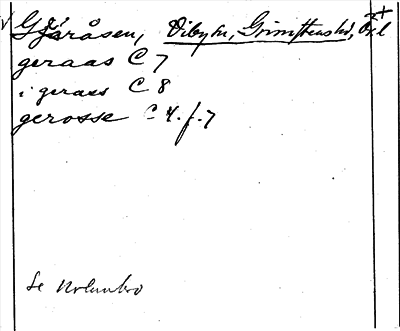 Gjeråsen, Viby sn, Grimstens hd, Ö.l
geraas C 7
i geraas C 8
gerosse C 4. f. 7
Se